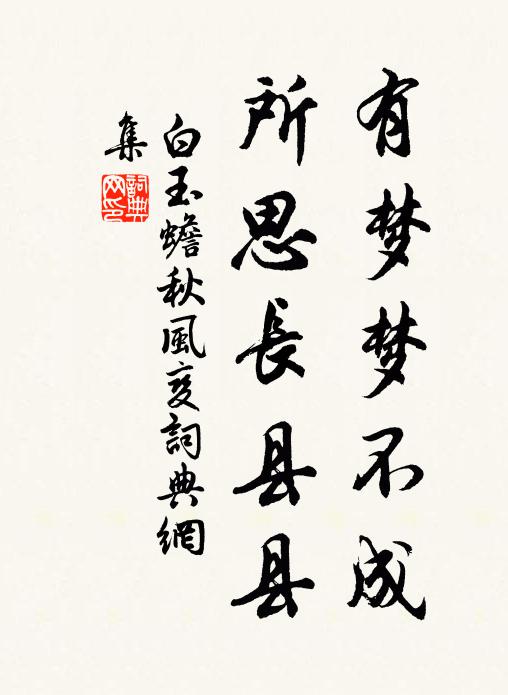 有梦梦不成
所思長县县
白玉蟾秋風变詞典網
集
詞典
网印